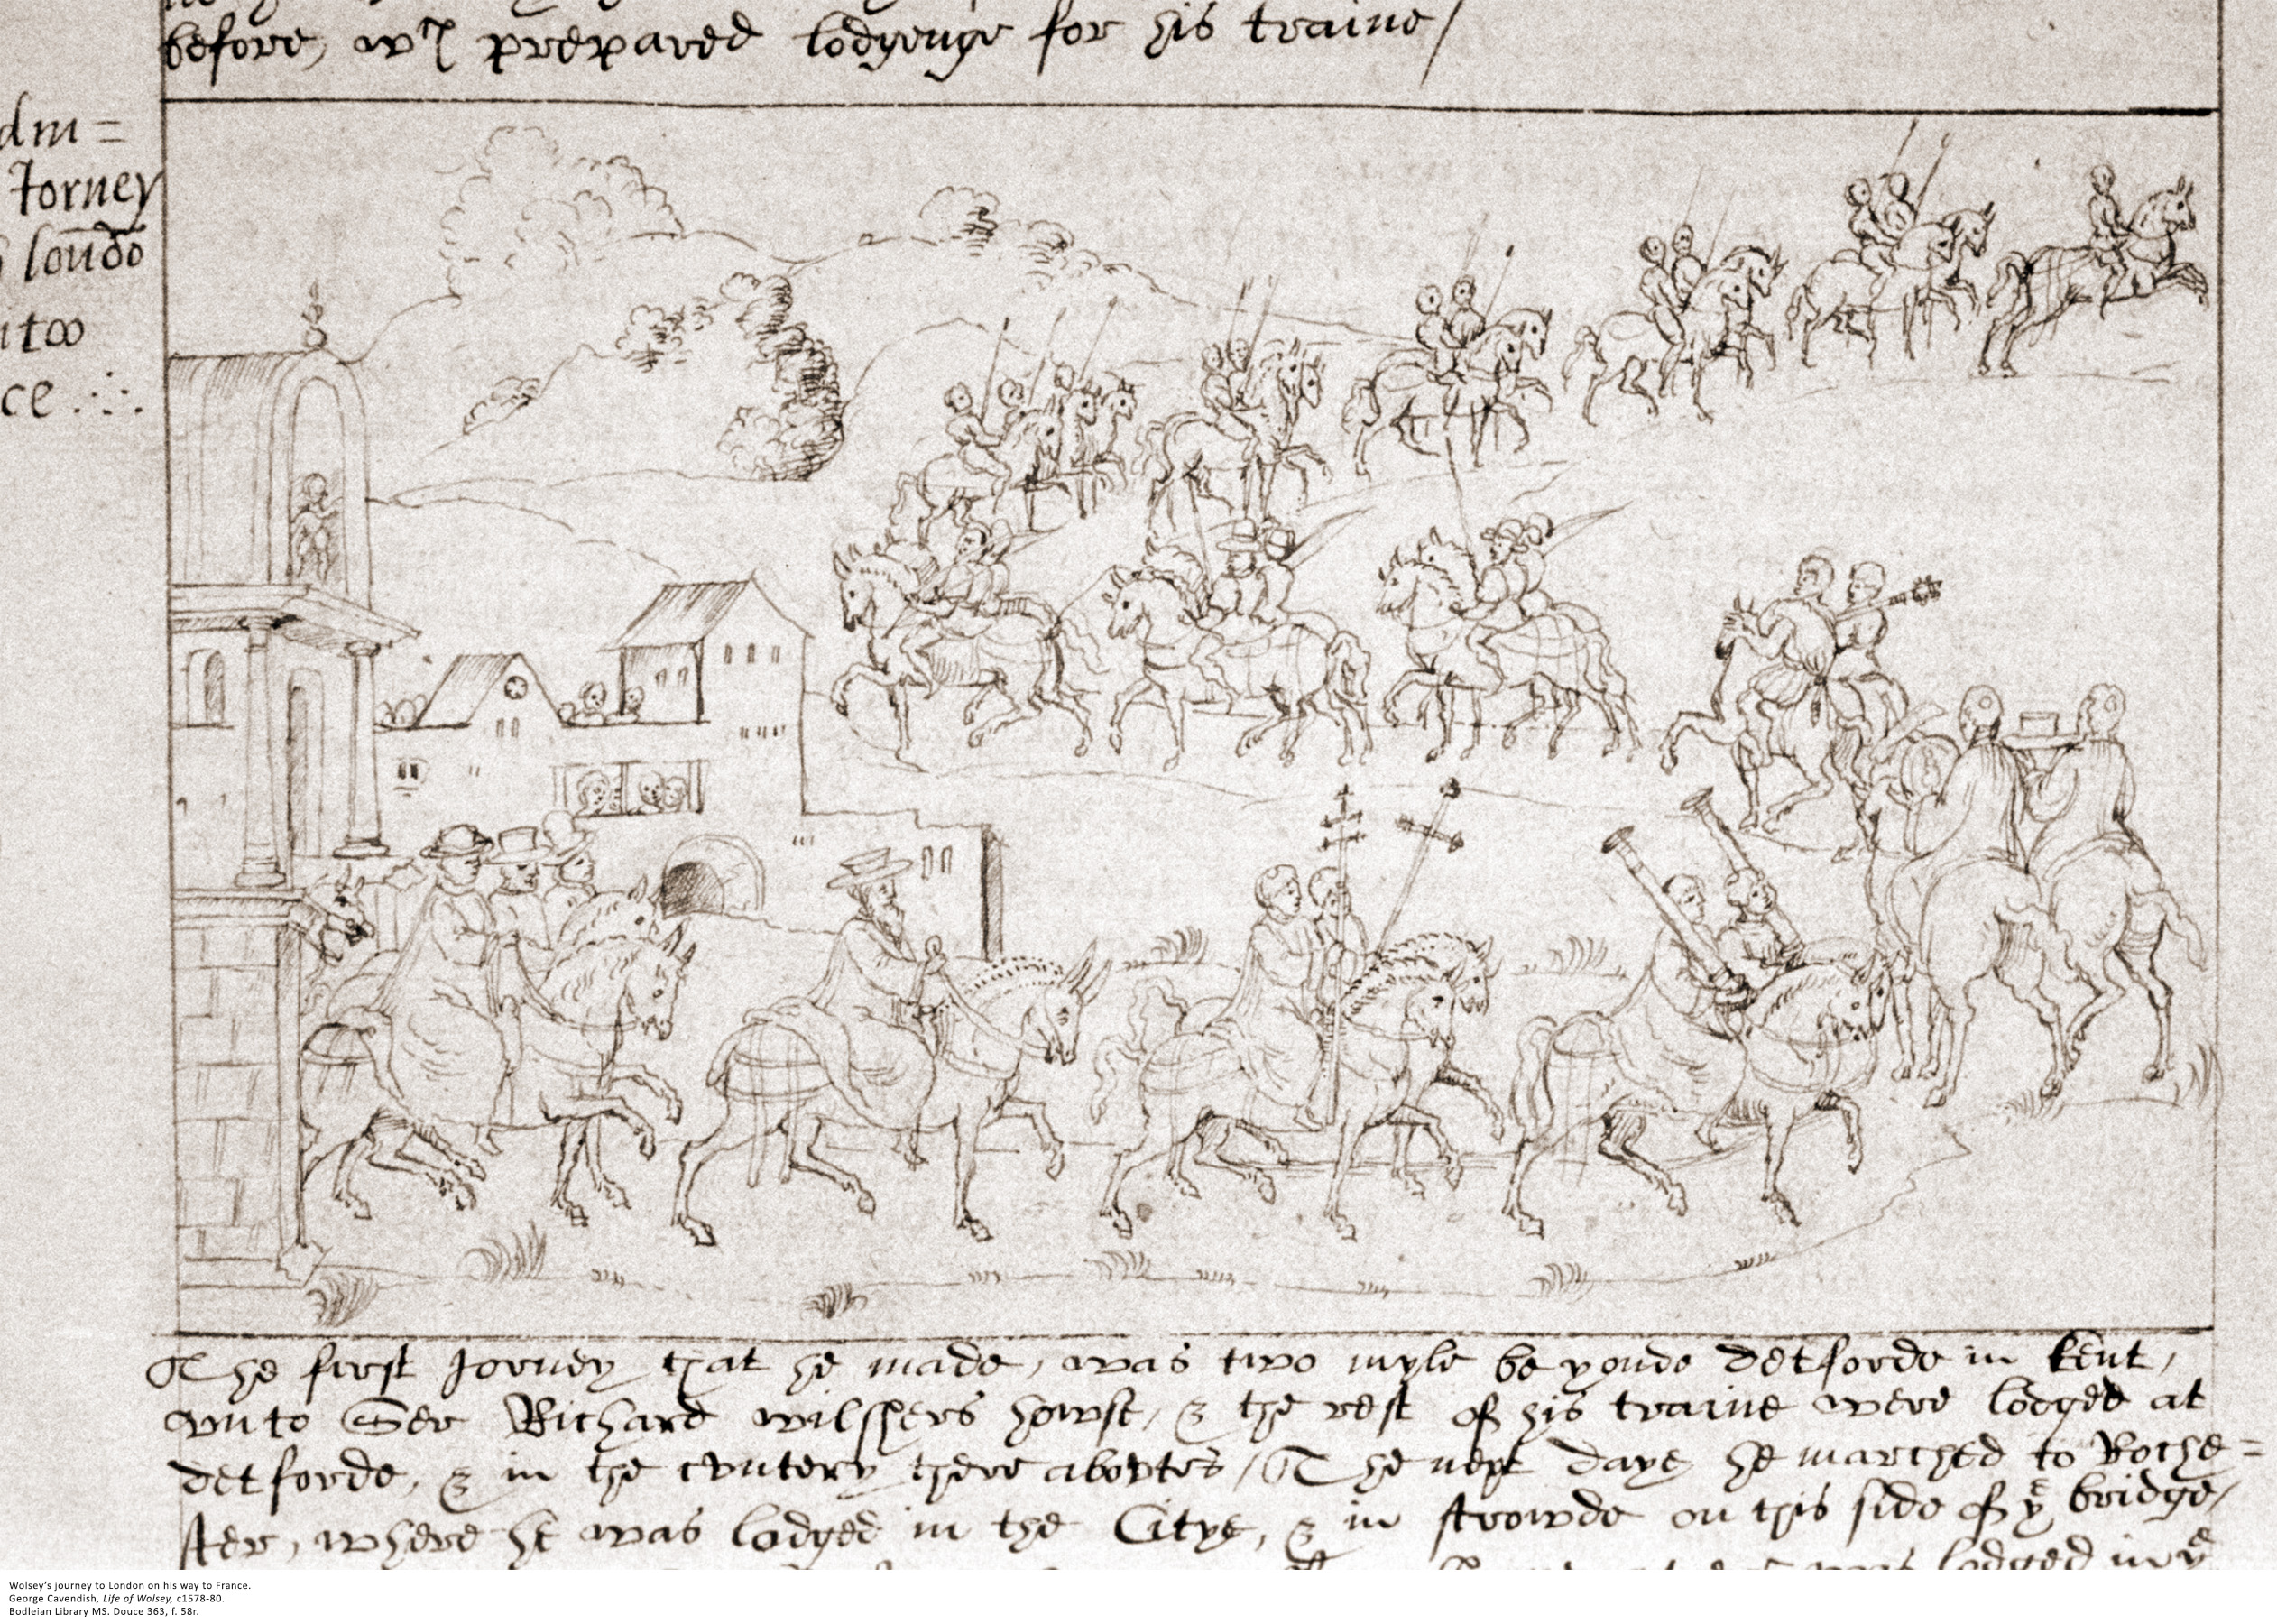 before, wch prepared lodgenge for his traine /
dm =
Jorney
loudō
itoo
ce
The first Jorney that he made, was two myle beyonde detforde in kent,
vnto Ser Richard wilshers howse, & the rest of his traine were lodged at
detforde, & in the cuntery there abovtes / The next daye he marched to Roche=
ster, where he was lodged in the Citye, & in strowde on this side of ye bridge,
lodged in ye
Wolsey's journey to London on his way to France.
George Cavendish, Life of Wolsey, c1578-80.
Bodleian Library MS. Douce 363, f. 58r.